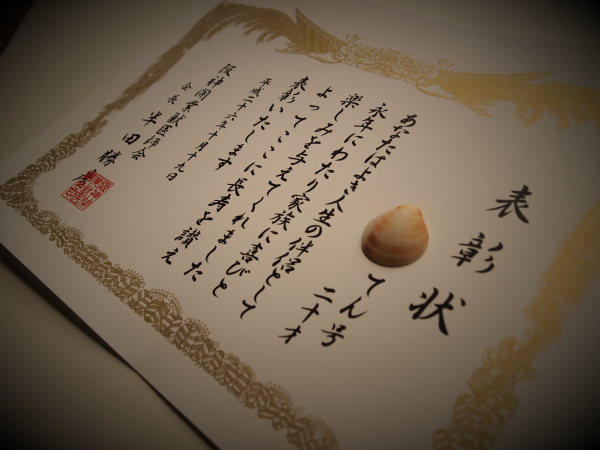 表彰状
てん号
二十才
あなたはよき人生の伴侶として
永年にわたり家族に喜びと
楽しみを与えてくれました
よってここに長寿を讃え
表彰いたします
平成二十六年十月十九日
阪神開業獣医師会
会長 半田勝彦